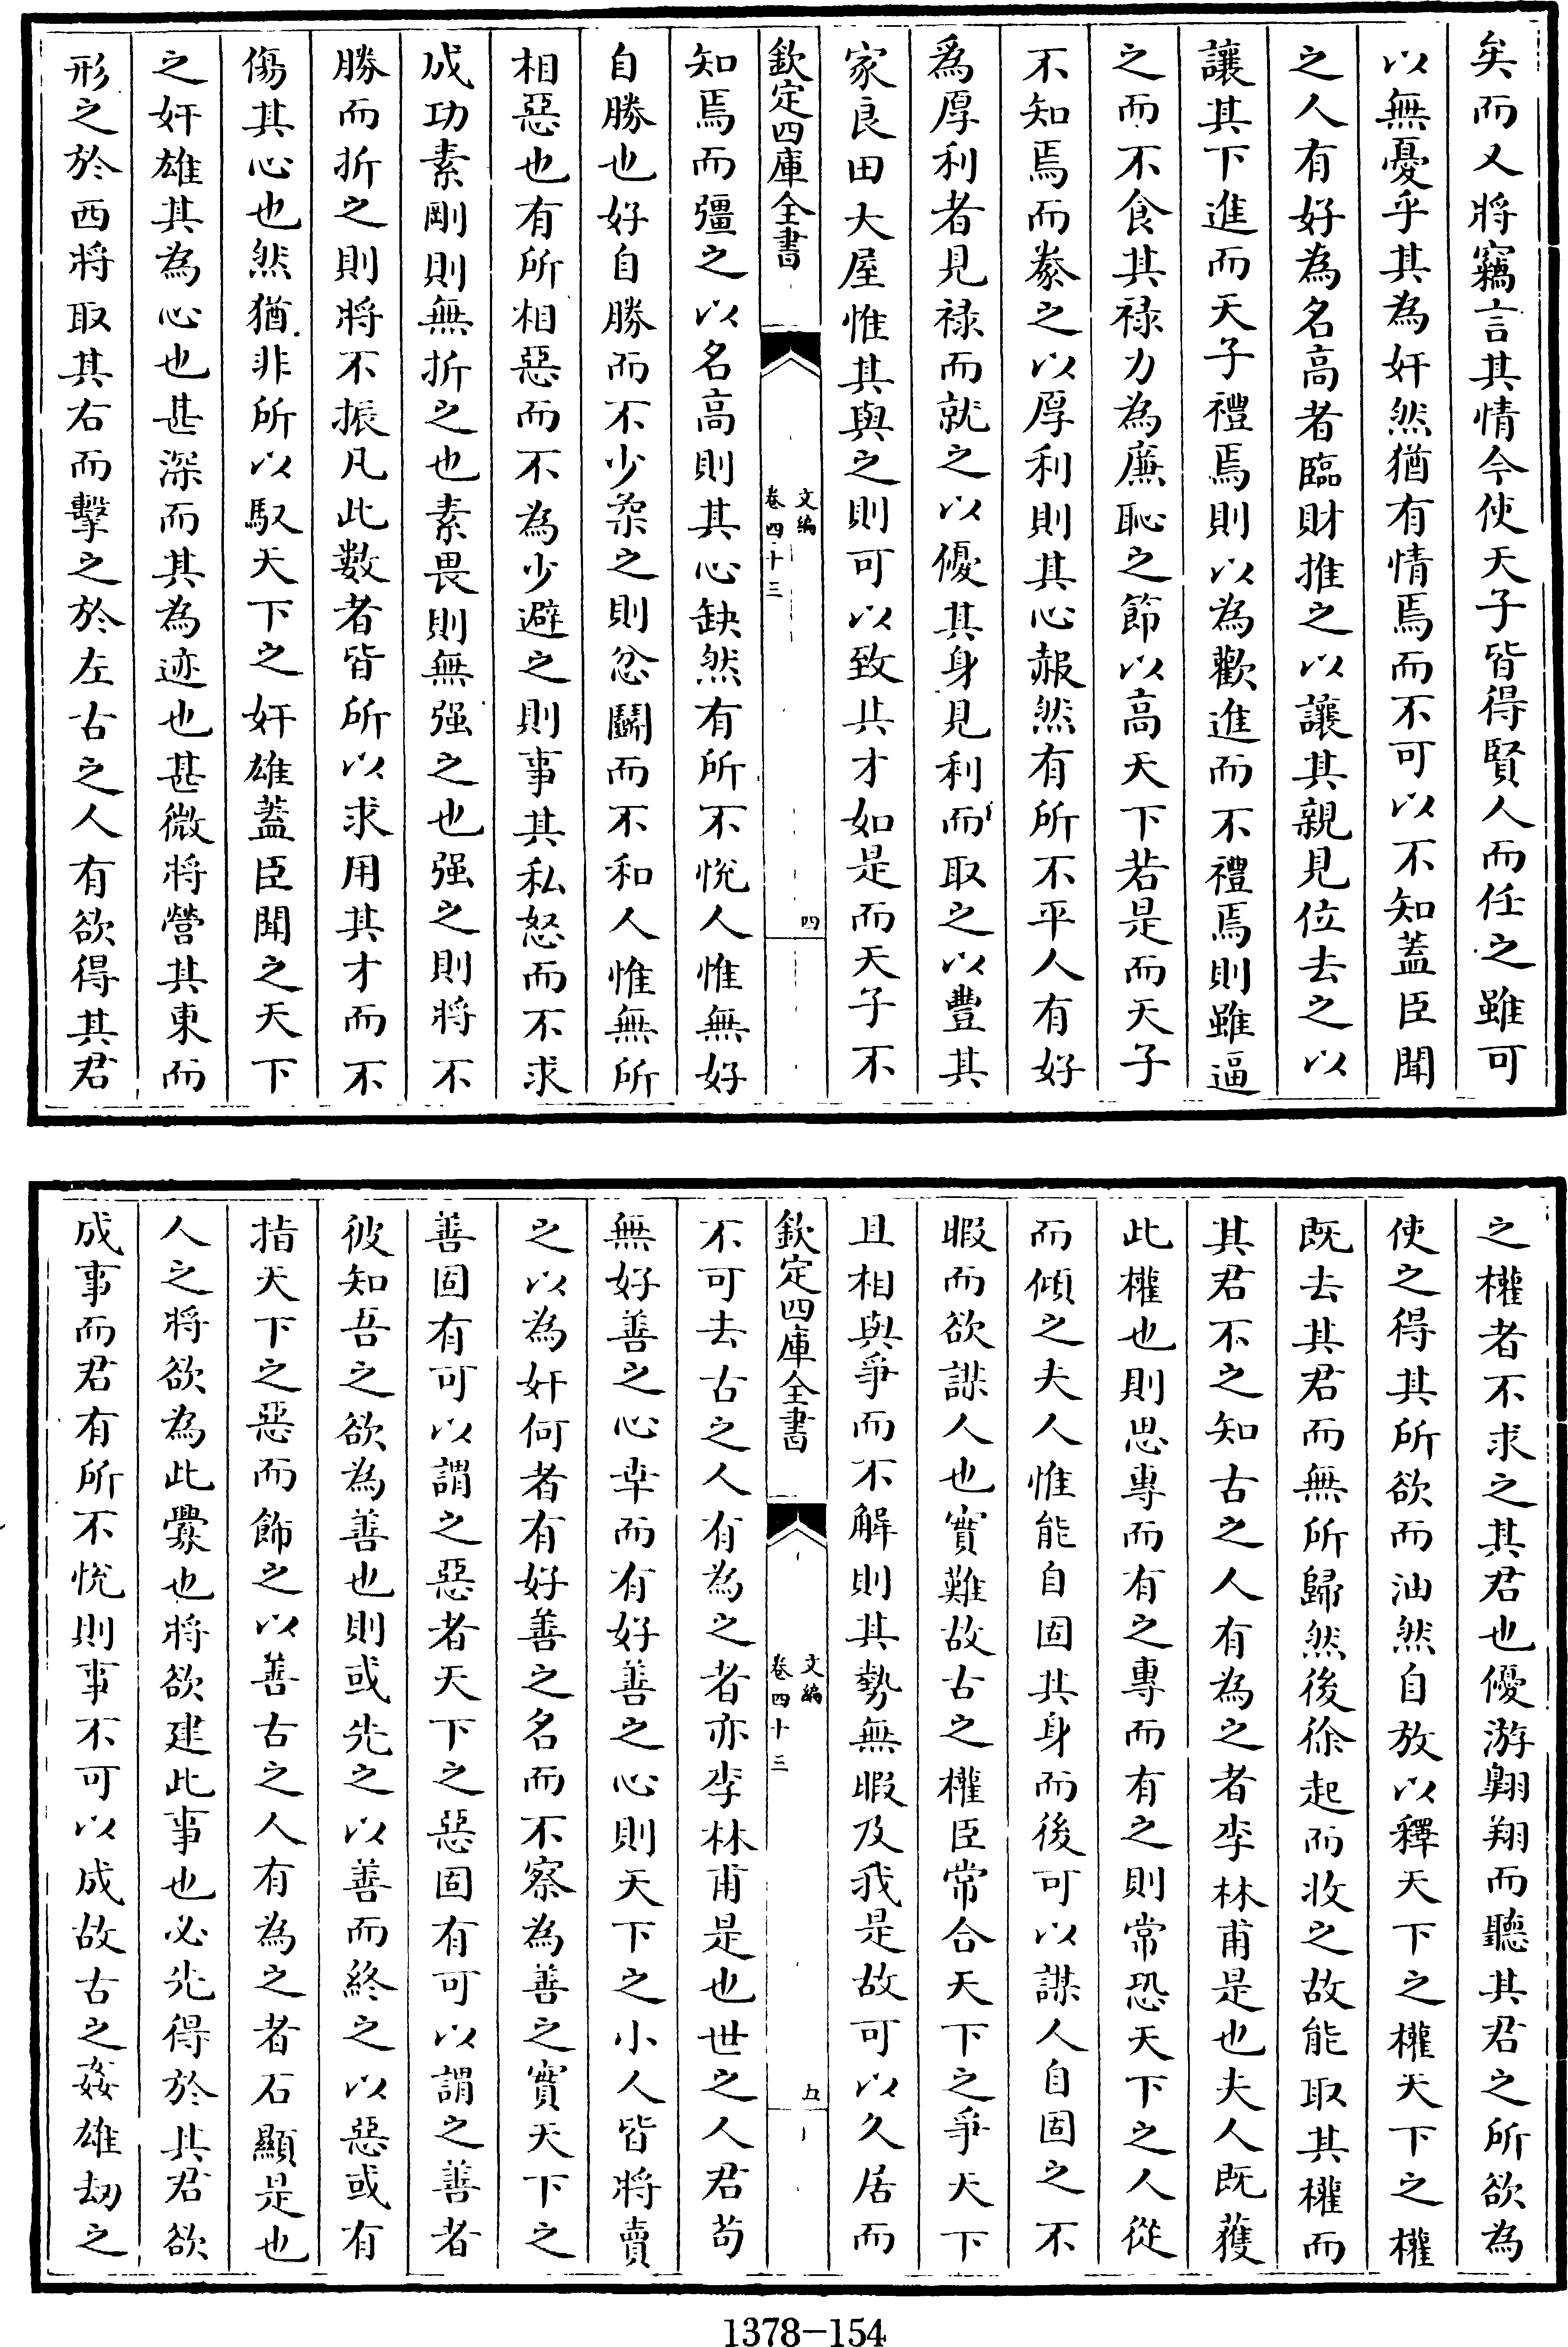 矣而又將竊言其情今使天子皆得賢人而任之雖可
以無憂乎其為奸然猶有情焉而不可以不知蓋臣聞
之人有好為名高者臨財推之以讓其親見位去之以
讓其下進而天子禮焉則以為歡進而不禮焉則雖逼
之而不食其祿力為廉恥之節以高天下若是而天子
不知焉而豢之以厚利則其心赧然有所不平人有好
為厚利者見祿而就之以優其身見利而取之以豐其
家良田大屋惟其與之則可以致其才如是而天子不
欽定四庫全書
文編
卷四十三
四
知焉而彊之以名高則其心缺然有所不悅人惟無好
自勝也好自勝而不少柔之則忿鬬而不和人惟無所
相惡也有所相惡而不為少避之則事其私怒而不求
成功素剛則無折之也素畏則無强之也强之則將不
勝而折之則將不振凡此數者皆所以求用其才而不
傷其心也然猶非所以馭天下之奸雄蓋臣聞之天下
之奸雄其為心也甚深而其為迹也甚微將營其東而
形之於西將取其右而擊之於左古之人有欲得其君
之權者不求之其君也優游翺翔而聽其君之所欲為
使之得其所欲而油然自放以釋天下之權天下之權
既去其君而無所歸然後徐起而收之故能取其權而
其君不之知古之人有為之者李林甫是也夫人既獲
此權也則思專而有之專而有之則常恐天下之人從
而傾之夫人惟能自固其身而後可以謀人自固之不
暇而欲謀人也實難故古之權臣常合天下之爭天下
且相與爭而不解則其勢無暇及我是故可以久居而
欽定四庫全書
文編
卷四十三
五
不可去古之人有為之者亦李林甫是也世之人君苟
無好善之心幸而有好善之心則天下之小人皆將賣
之以為奸何者有好善之名而不察為善之實天下之
善固有可以謂之惡者天下之惡固有可以謂之善者
彼知吾之欲為善也則或先之以善而終之以惡或有
指天下之惡而飾之以善古之人有為之者石顯是也
人之將欲為此釁也將欲建此事也必先得於其君欲
成事而君有所不悅則事不可以成故古之姦雄劫之
1378-154